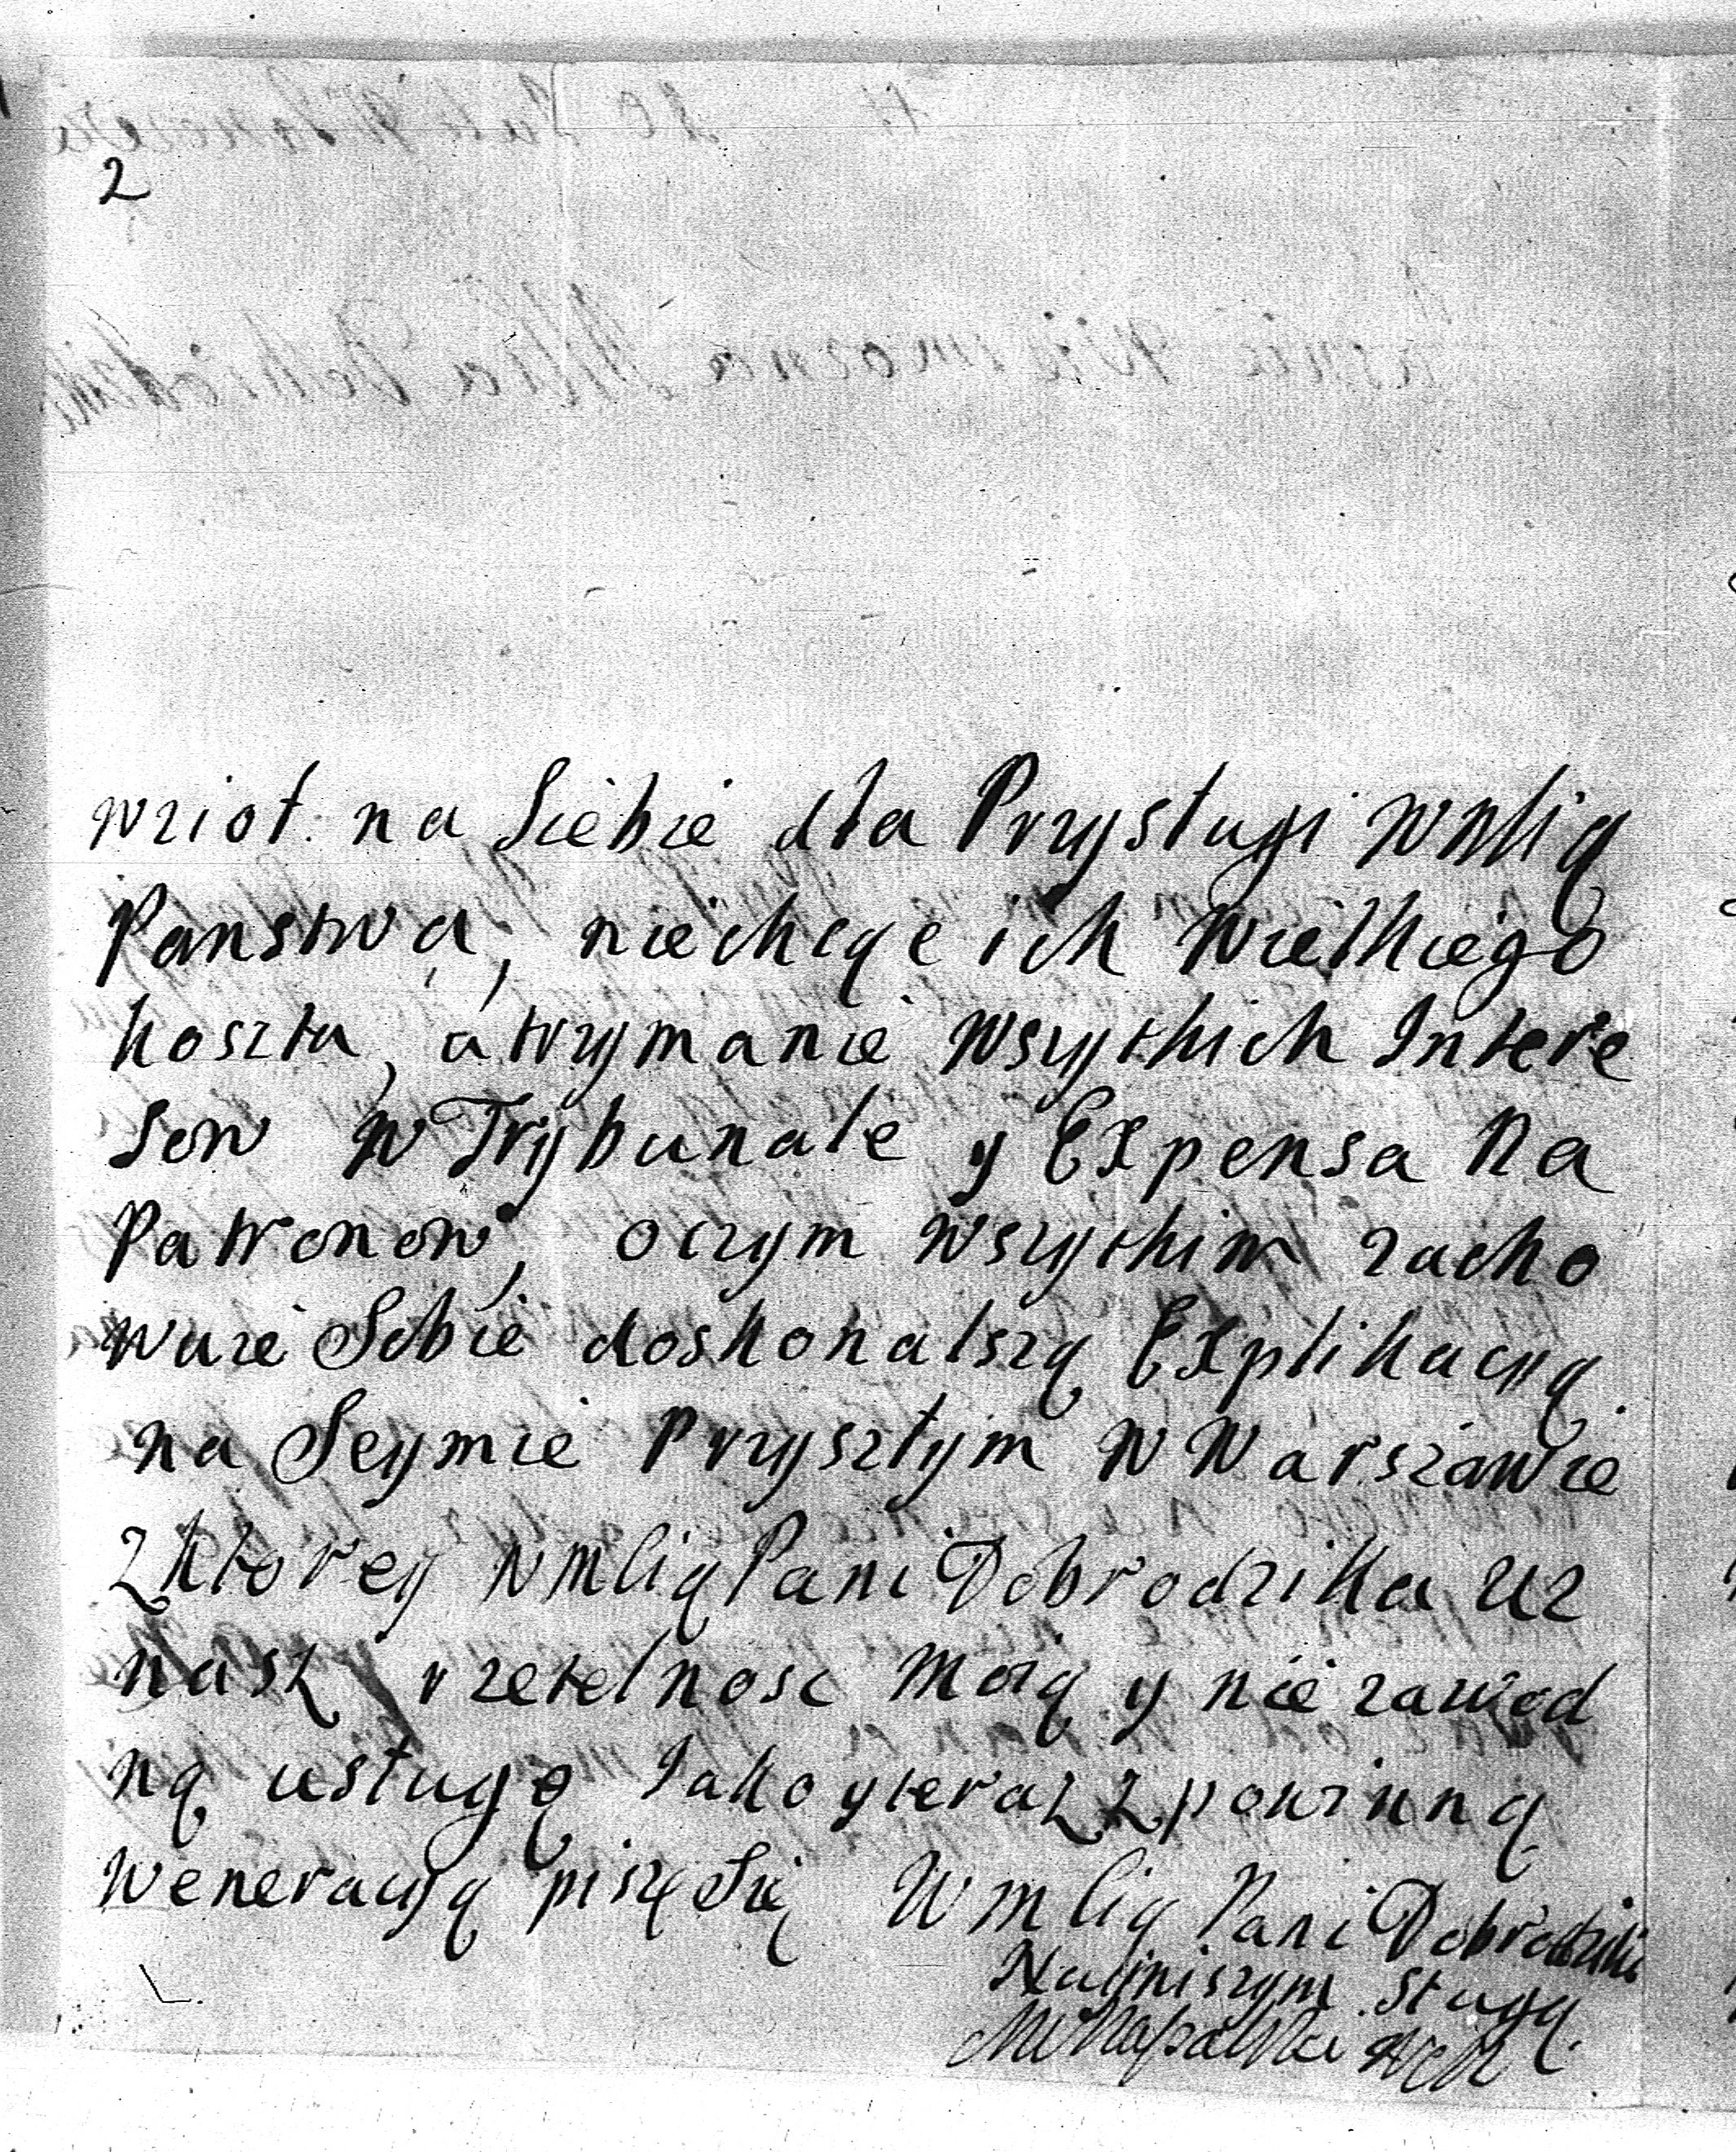 2
wzioł na Siebie dla Przysługi WMLią
Panstwa, niechcąc ich Wielkiego
koszta, a trzymanie wszytkich Intere
sow w Trybunale y Expensa na
Patronow, oczym wszytkim zacho
wuie Sobie doskonalszą Explikacyą
na Seymie Przyszłym w Warszawie
z ktorey WMLią Pani Dobrodzika uz
nasz rzetelnosc moią y nie zawod
ną usługę Iako y teraz z powinną
Weneracyą piszę Się WMLią Pani Dobrodziki
Nayniszym Sługą